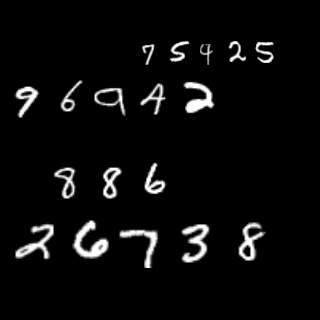 75425
96942
886
26738